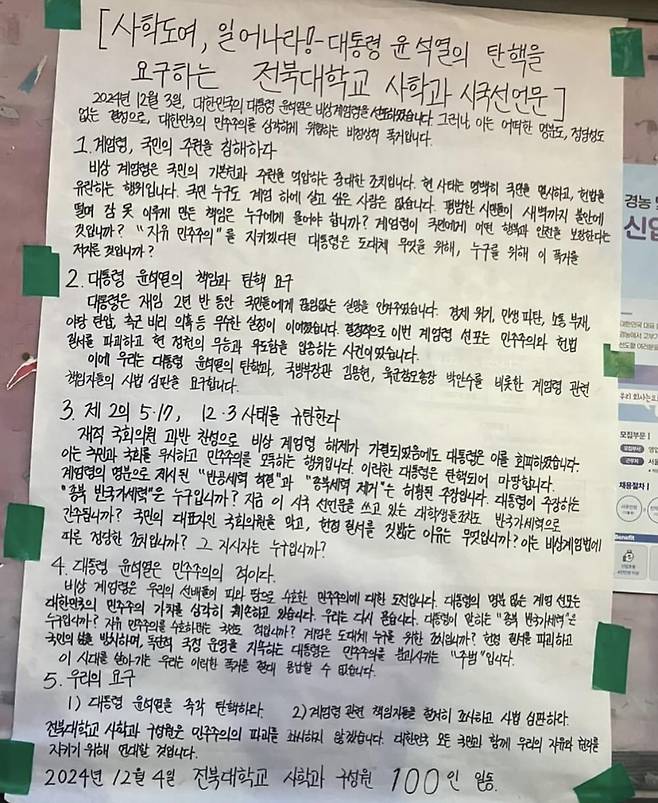 [ 사학도여, 일어나라! - 대통령 윤석열의 탄핵을
요구하는 전북대학교 사학과 시국선언문 ]
2024년 12월 3일, 대한민국의 대통령 윤석열은 비상계엄령을 선포하였습니다. 그러나, 이는 어떠한 명분도, 정당성도
없는 결정으로, 대한민국의 민주주의를 심각하게 위협하는 비정상적 폭거입니다.
1. 계엄령, 국민의 주권을 침해하다
비상 계엄령은 국민의 기본권과 주권을 억압하는 중대한 조치입니다. 현 사태는 명백히 국민을 멸시하고, 헌법을
유린하는 행위입니다. 국민 누구도 계엄 하에 살고 싶은 사람은 없습니다. 평범한 시민들이 새벽까지 불안에
떨며 잠 못 이루게 만든 책임은 누구에게 물어야 합니까? 계엄령이 국민에게 어떤 행복과 안전을 보장한다는
것입니까? "자유 민주주의"를 지키겠다던 대통령은 도대체 무엇을 위해, 누구를 위해 이 폭거를
저지른 것입니까?
2. 대통령 윤석열의 책임과 탄핵 요구
대통령은 재임 2년 반 동안 국민들에게 끊임없는 실망을 안겨주었습니다. 경제 위기, 민생 파탄, 소통 부재,
야당 탄압, 측근 비리 의혹 등 무수한 실정이 이어졌습니다. 결정적으로 이번 계엄령 선포는 민주주의와 헌법
질서를 파괴하고 현 정권의 무능과 무도함을 입증하는 사건이었습니다.
이에 우리는 대통령 윤석열의 탄핵과, 국방부장관 김용현, 육군참모총장 박안수를 비롯한 계엄령 관련
책임자들의 사법 심판을 요구합니다.
3. 제 2의 5·17, 12·3사태를 규탄한다
재적 국회의원 과반 찬성으로 비상 계엄령 해제가 가결되었음에도 대통령은 이를 회피하였습니다.
이는 국민과 국회를 무시하고 민주주의를 모독하는 행위입니다. 이러한 대통령은 탄핵되어 마땅합니다.
계엄령의 명분으로 제시된 "반공세력 척결"과 "종북세력 제거"는 허황된 주장입니다. 대통령이 주장하는
"종북 반국가세력"은 누구입니까? 지금 이 시국 선언문을 쓰고 있는 대학생들조차도 반국가세력으로
간주됩니까? 국민의 대표자인 국회의원을 막고, 헌정 질서를 짓밟는 이유는 무엇입니까? 이는 비상계엄법에
따른 정당한 조치입니까? 그 지시자는 누구입니까?
4. 대통령 윤석열은 민주주의의 적이다.
비상 계엄령은 우리의 선배들이 피와 땀으로 수호한 민주주의에 대한 도전입니다. 대통령의 명분 없는 계엄 선포는
대한민국의 민주주의 가치를 심각히 훼손하고 있습니다. 우리는 다시 묻습니다. 대통령이 말하는 "종북 반국가세력"은
누구입니까? 자유 민주주의를 수호하려는 국민도 적입니까? 계엄은 도대체 누구를 위한 조치입니까? 헌정 질서를 파괴하고
국민의 삶을 방치하며, 독단적 국정 운영을 지속하는 대통령은 민주주의를 붕괴시키는 "주범"입니다.
이 시대를 살아가는 우리는 이러한 폭거를 절대 용납할 수 없습니다.
5. 우리의 요구
1) 대통령 윤석열을 즉각 탄핵하라. 2) 계엄령 관련 책임자들을 철저히 조사하고 사법 심판하라.
전북대학교 사학과 구성원은 민주주의의 파괴를 좌시하지 않겠습니다. 대한민국 모든 국민과 함께 우리의 자유와 권리를
지키기 위해 연대할 것입니다.
2024년 12월 4일 전북대학교 사학과 구성원 100인 일동.
경농
신입
대한민국 대표
경농에서
우리 회사는
모집부문
모집부서
근무처
채용절차
Benefit